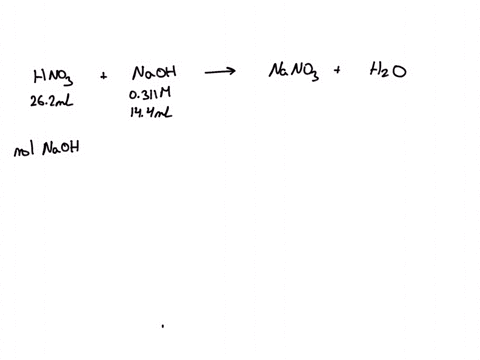 HNO₃ + NaOH → NaNO₃ + H₂O
26.2mL 0.311M
14.4mL
mol NaOH